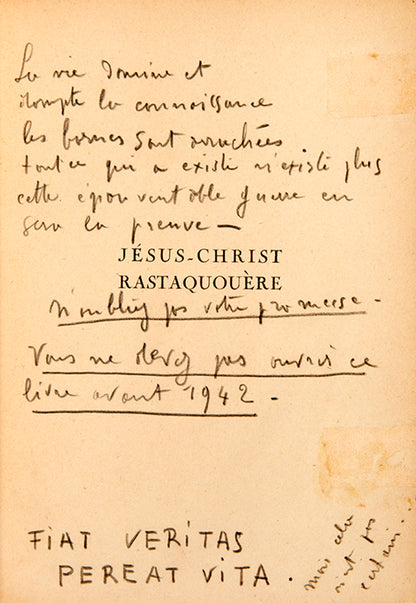 La vie domine et
dompte la connaissance
les bornes sont arrachées
tout ce qui a existé n'existe plus
cette épouvantable guerre en
sera la preuve —
JÉSUS-CHRIST
RASTAQUOUÈRE
N'oubliez pas votre promesse -
Vous ne devez pas ouvrir ce
livre avant 1942 -
FIAT VERITAS
PEREAT VITA .
mais cela
n'est pas
certain...